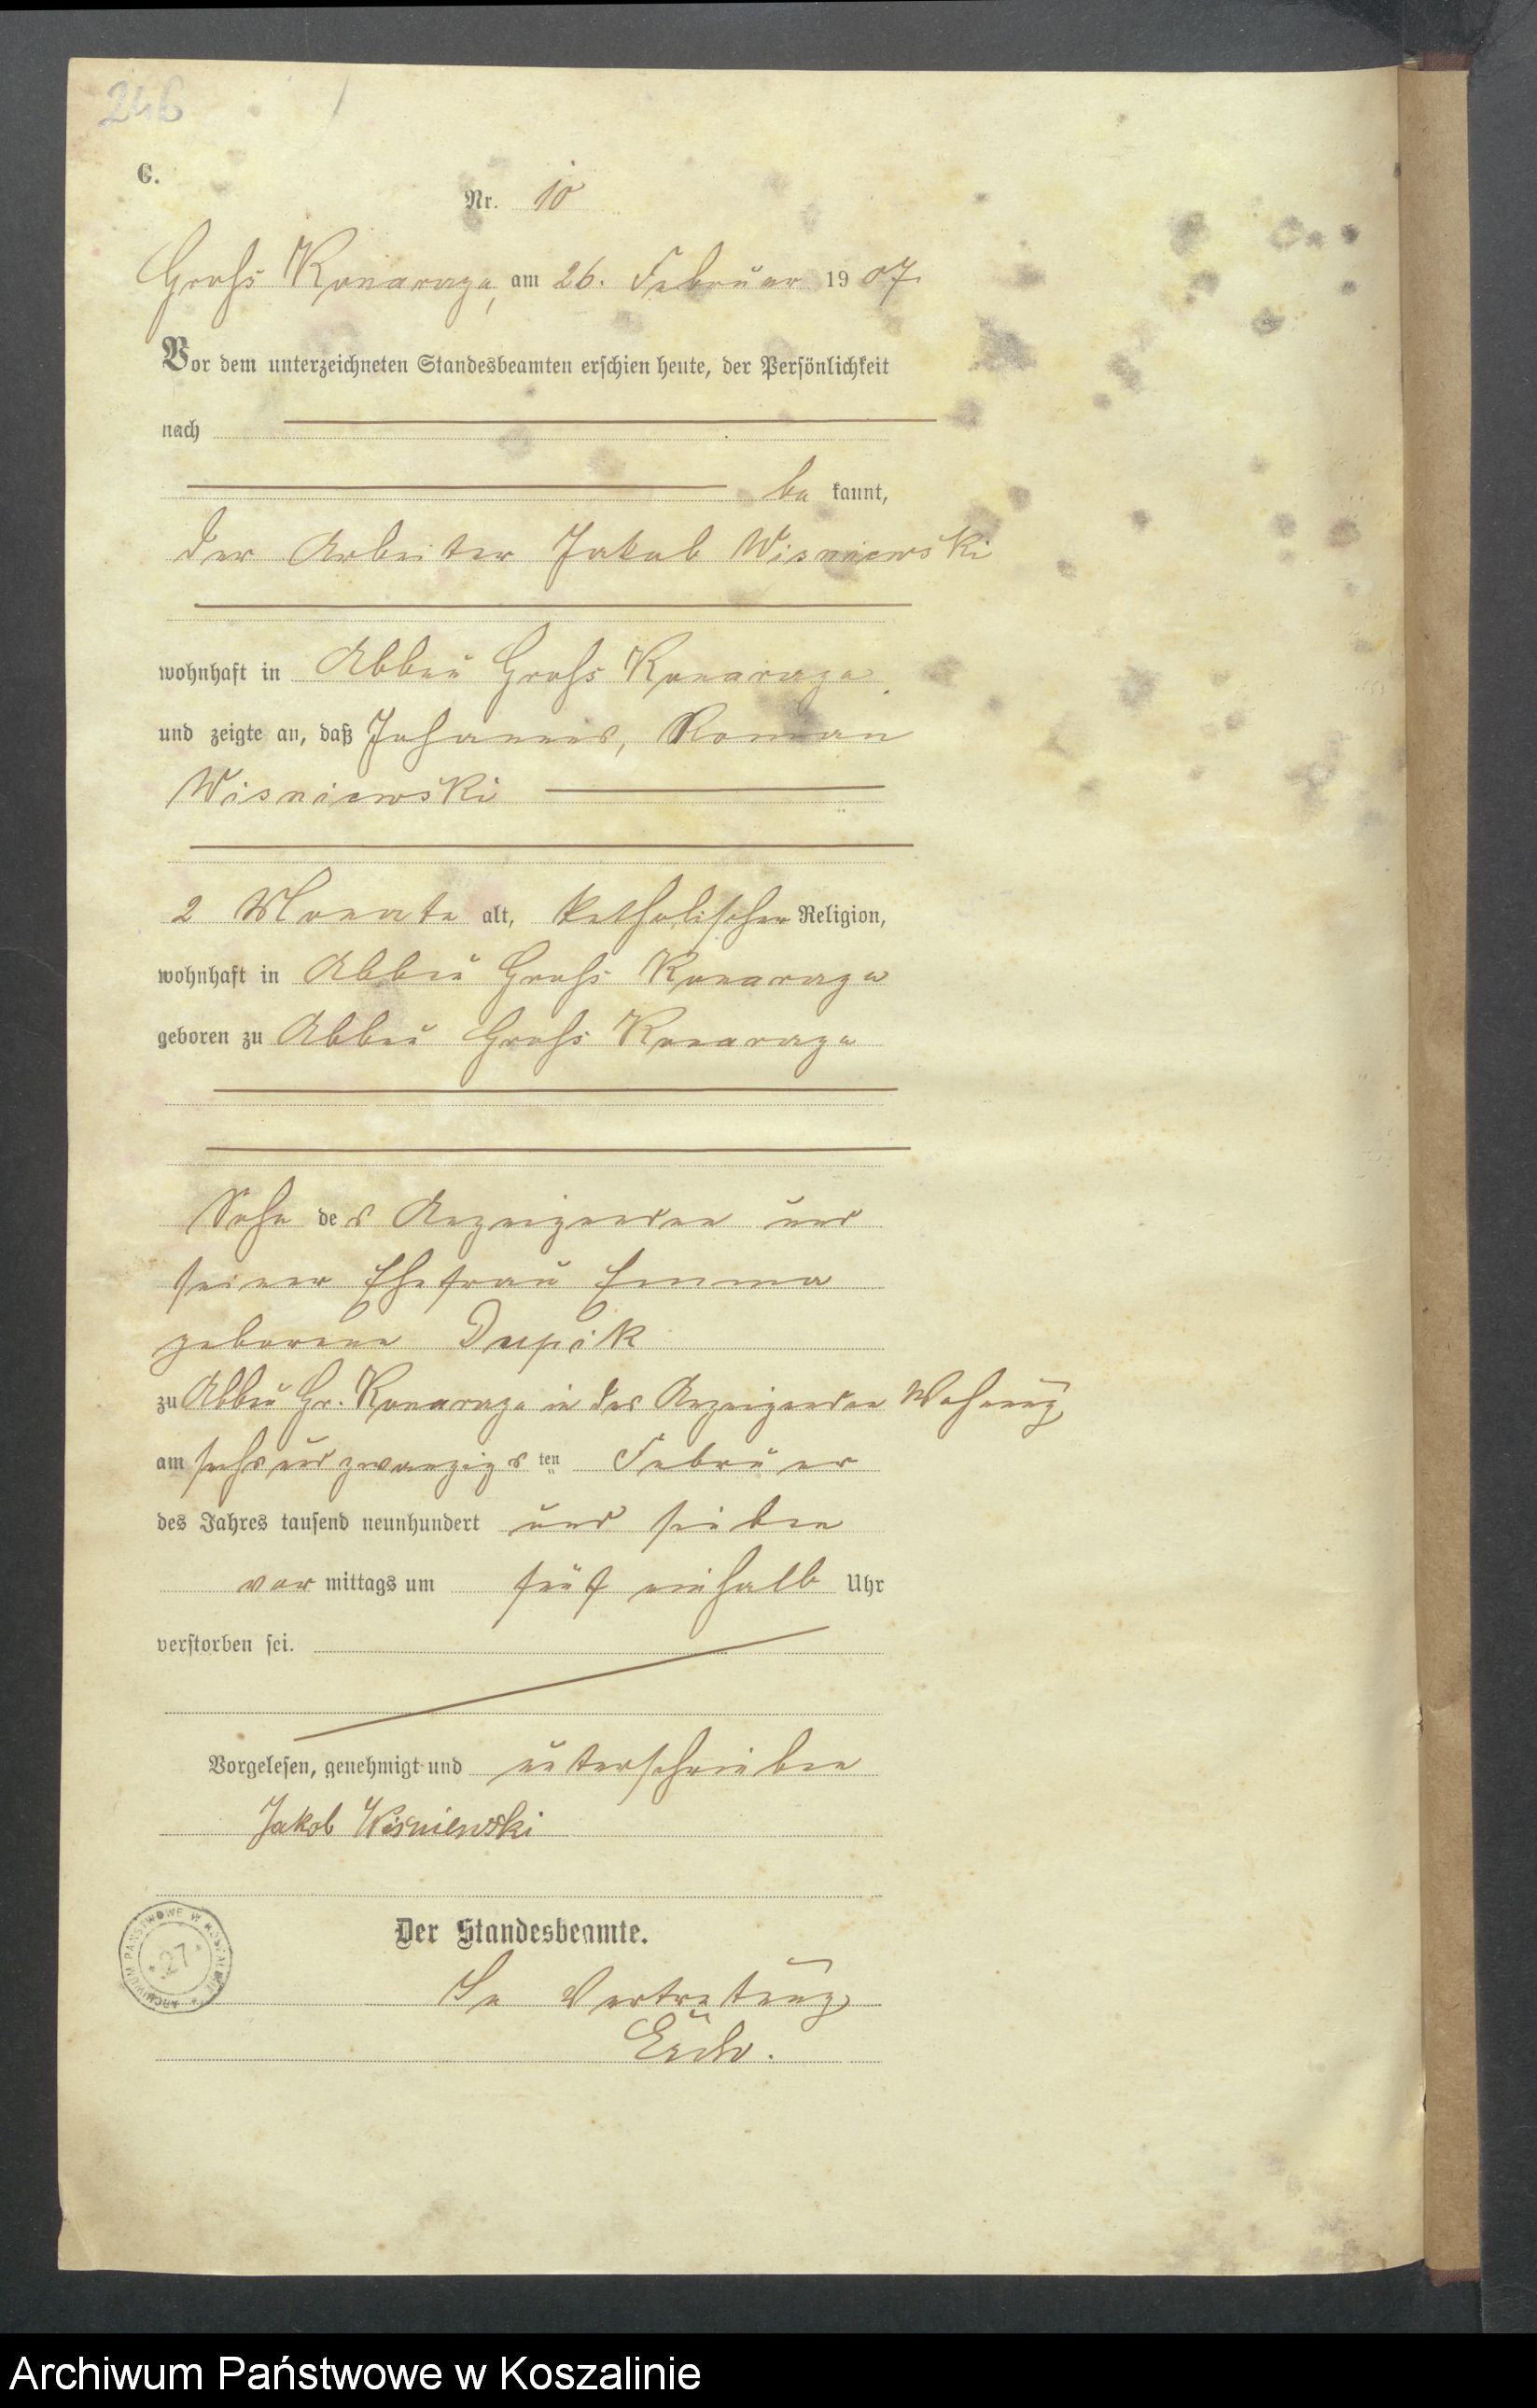 246
C.
Nr. 10
Groß Konarczyn, am 26. Februar 1907.
Vor dem unterzeichneten Standesbeamten erschien heute, der Persönlichkeit
nach
be kannt,
der Arbeiter Jakob Wisniewski
wohnhaft in Abbau Groß Konarczyn
und zeigte an, daß Johannes, Roman
Wisniewski
2 Monate alt, katholischer Religion,
wohnhaft in Abbau Groß Konarczyn
geboren zu Abbau Groß Konarczyn
Sohn des Anzeigenden und
seiner Ehefrau Emma
geborene Dupik
zu Abbau Gr. Konarczyn in des Anzeigenden Wohnung
am sechsundzwanzigsten Februar
des Jahres tausend neunhundert und sieben
vor mittags um fünf einhalb Uhr
verstorben sei.
Vorgelesen, genehmigt und unterschrieben
Jakob Wisniewski
Der Standesbeamte.
In Vertretung
ARCHIWUM PAŃSTWOWE W KOSZALINIE
27
Archiwum Państwowe w Koszalinie